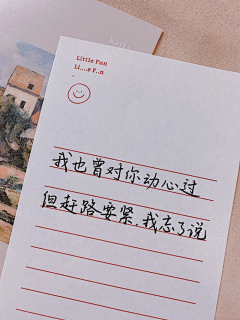 Little Fun
我也曾对你动心过
但赶路要紧，我忘了说